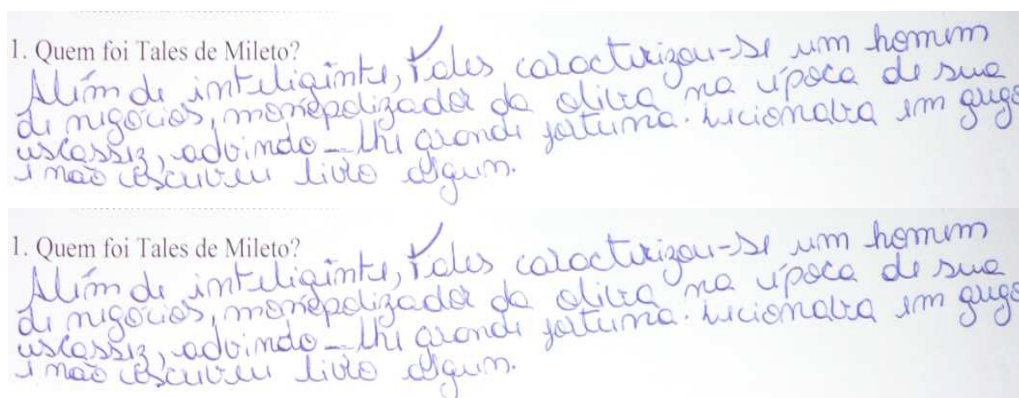 1. Quem foi Tales de Mileto?
Além de inteligênte, Tales caracterizou-se um homem
de negócios, monopolizador da oliva na época de sua
escassez, advindo-lhe grande fortuna. Lecionava em grego
e não escreveu livro algum.
1. Quem foi Tales de Mileto?
Além de inteligênte, Tales caracterizou-se um homem
de negócios, monopolizador da oliva na época de sua
escassez, advindo-lhe grande fortuna. Lecionava em grego
e não escreveu livro algum.